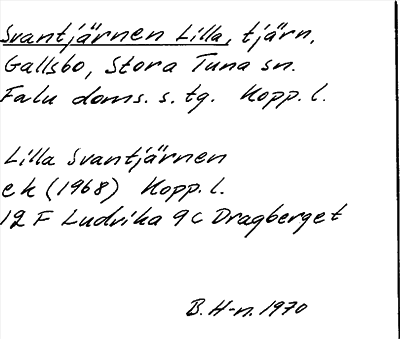 Svantjärnen Lilla, tjärn,
Gallsbo, Stora Tuna sn.
Falu doms. s. tg. Kopp. l.
Lilla Svantjärnen
ek (1968) Kopp. l.
12 F Ludvika 9 c Dragberget
B. H-n. 1970